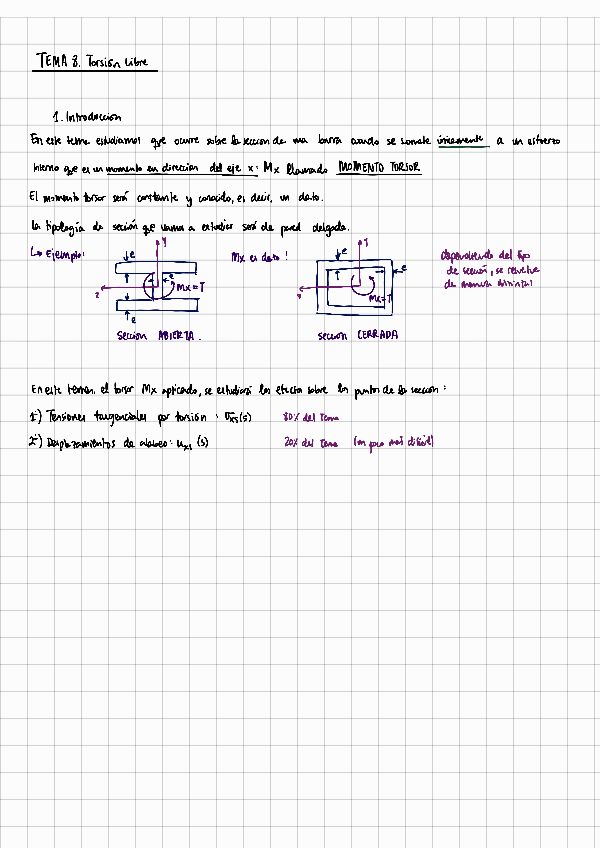 TEMA 8. Torsión Libre
1. Introducción
En este tema estudiamos que ocurre sobre la sección de una barra cuando se somete únicamente a un esfuerzo
interno que es un momento en dirección del eje x: Mx llamado MOMENTO TORSOR
El momento torsor será constante y conocido, es decir, un dato.
La tipología de sección que vamos a estudiar será de pared delgada.
↳ Ejemplo:
Mx es dato!
dependiendo del tipo
de sección, se resuelve
de manera distinta!
e
y
e
z
Mx=T
e
e
y
e
Mx=T
sección ABIERTA.
sección CERRADA
En este tema, el torsor Mx aplicado, se estudiará los efectos sobre los puntos de la sección:
1º) Tensiones tangenciales por torsión: σxs(s)
80% del tema
2º) Desplazamientos de alabeo: uxs(s)
20% del tema (un poco más difícil)